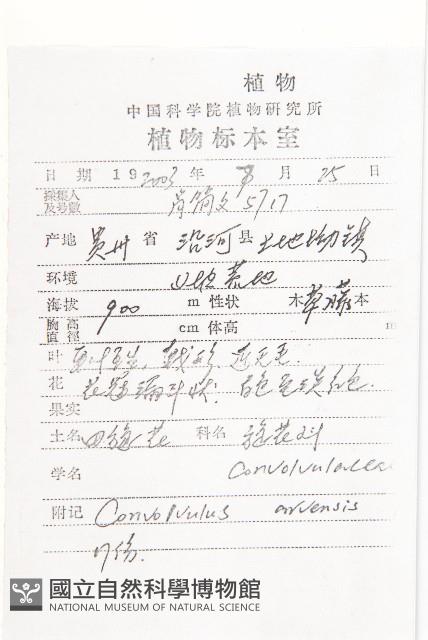 植物
中国科学院植物研究所
植物标本室
日期 19 2003 年 8 月 25 日
採集人
及号數 肖简文 5717
产地 贵州 省 沿河 县 土地坳镇
环境 山坡荒地
海拔 900 m 性状 木 草 藤 本
胸高
直徑 cm 体高 m
叶
花 花冠漏斗状. 白色至淡红色.
果实
土名 田旋花 科名 旋花科
学名 Convolvulaceae
附记 Convolvulus arvensis
國立自然科學博物館
NATIONAL MUSEUM OF NATURAL SCIENCE